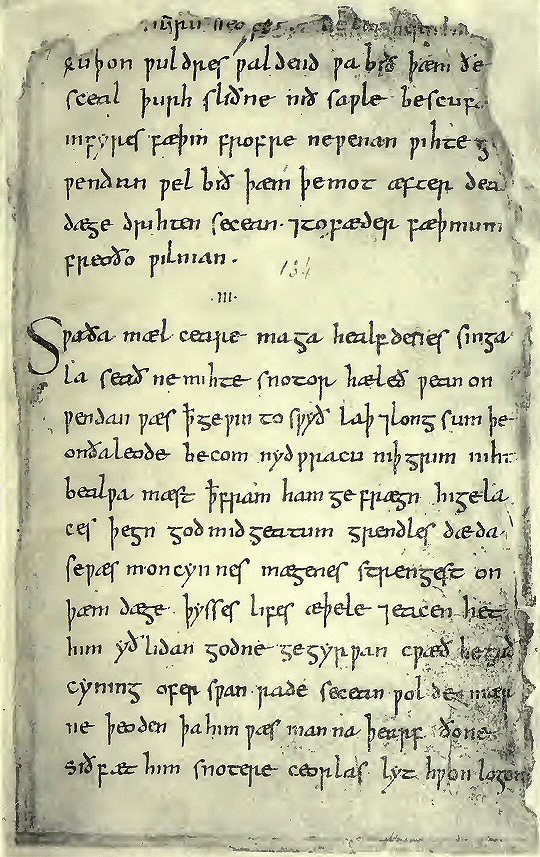 cuþon ƿuldres ƿaldend ƿa bið þæm ðe
sceal þurh sliðne nið saƿle bescuf
in fyres fæþm frofre neƿenan ƿihte g
ƿendan ƿel bið þæm þe mot æfter dea
dæge drihten secean · ⁊to fæder fæþmum
freoðo ƿilnian .
134
.III.
Sƿa ða mæl ceare maga healfdenes singa
la seað ne mihte snotor hæleð ƿean on
ƿendan ƿæs ꝥ geƿin to sƿyð laþ ⁊longsum þe
on ða leode becom nydƿracu niþgrim niht
bealƿa mæst ꝥ fram ham gefrægn higela
ces þegn god mid geatum grendles dæda
se ƿæs moncynnes mægenes strengest on
þæm dæge þysses lifes æþele ⁊eacen het
him yðlidan godne gegyrƿan cƿæð he guð
cyning ofer sƿanrade secean ƿolde mær
ne þeoden þa him ƿæs manna þearf ðone
siðfæt him snotere ceorlas lyt hƿon logon